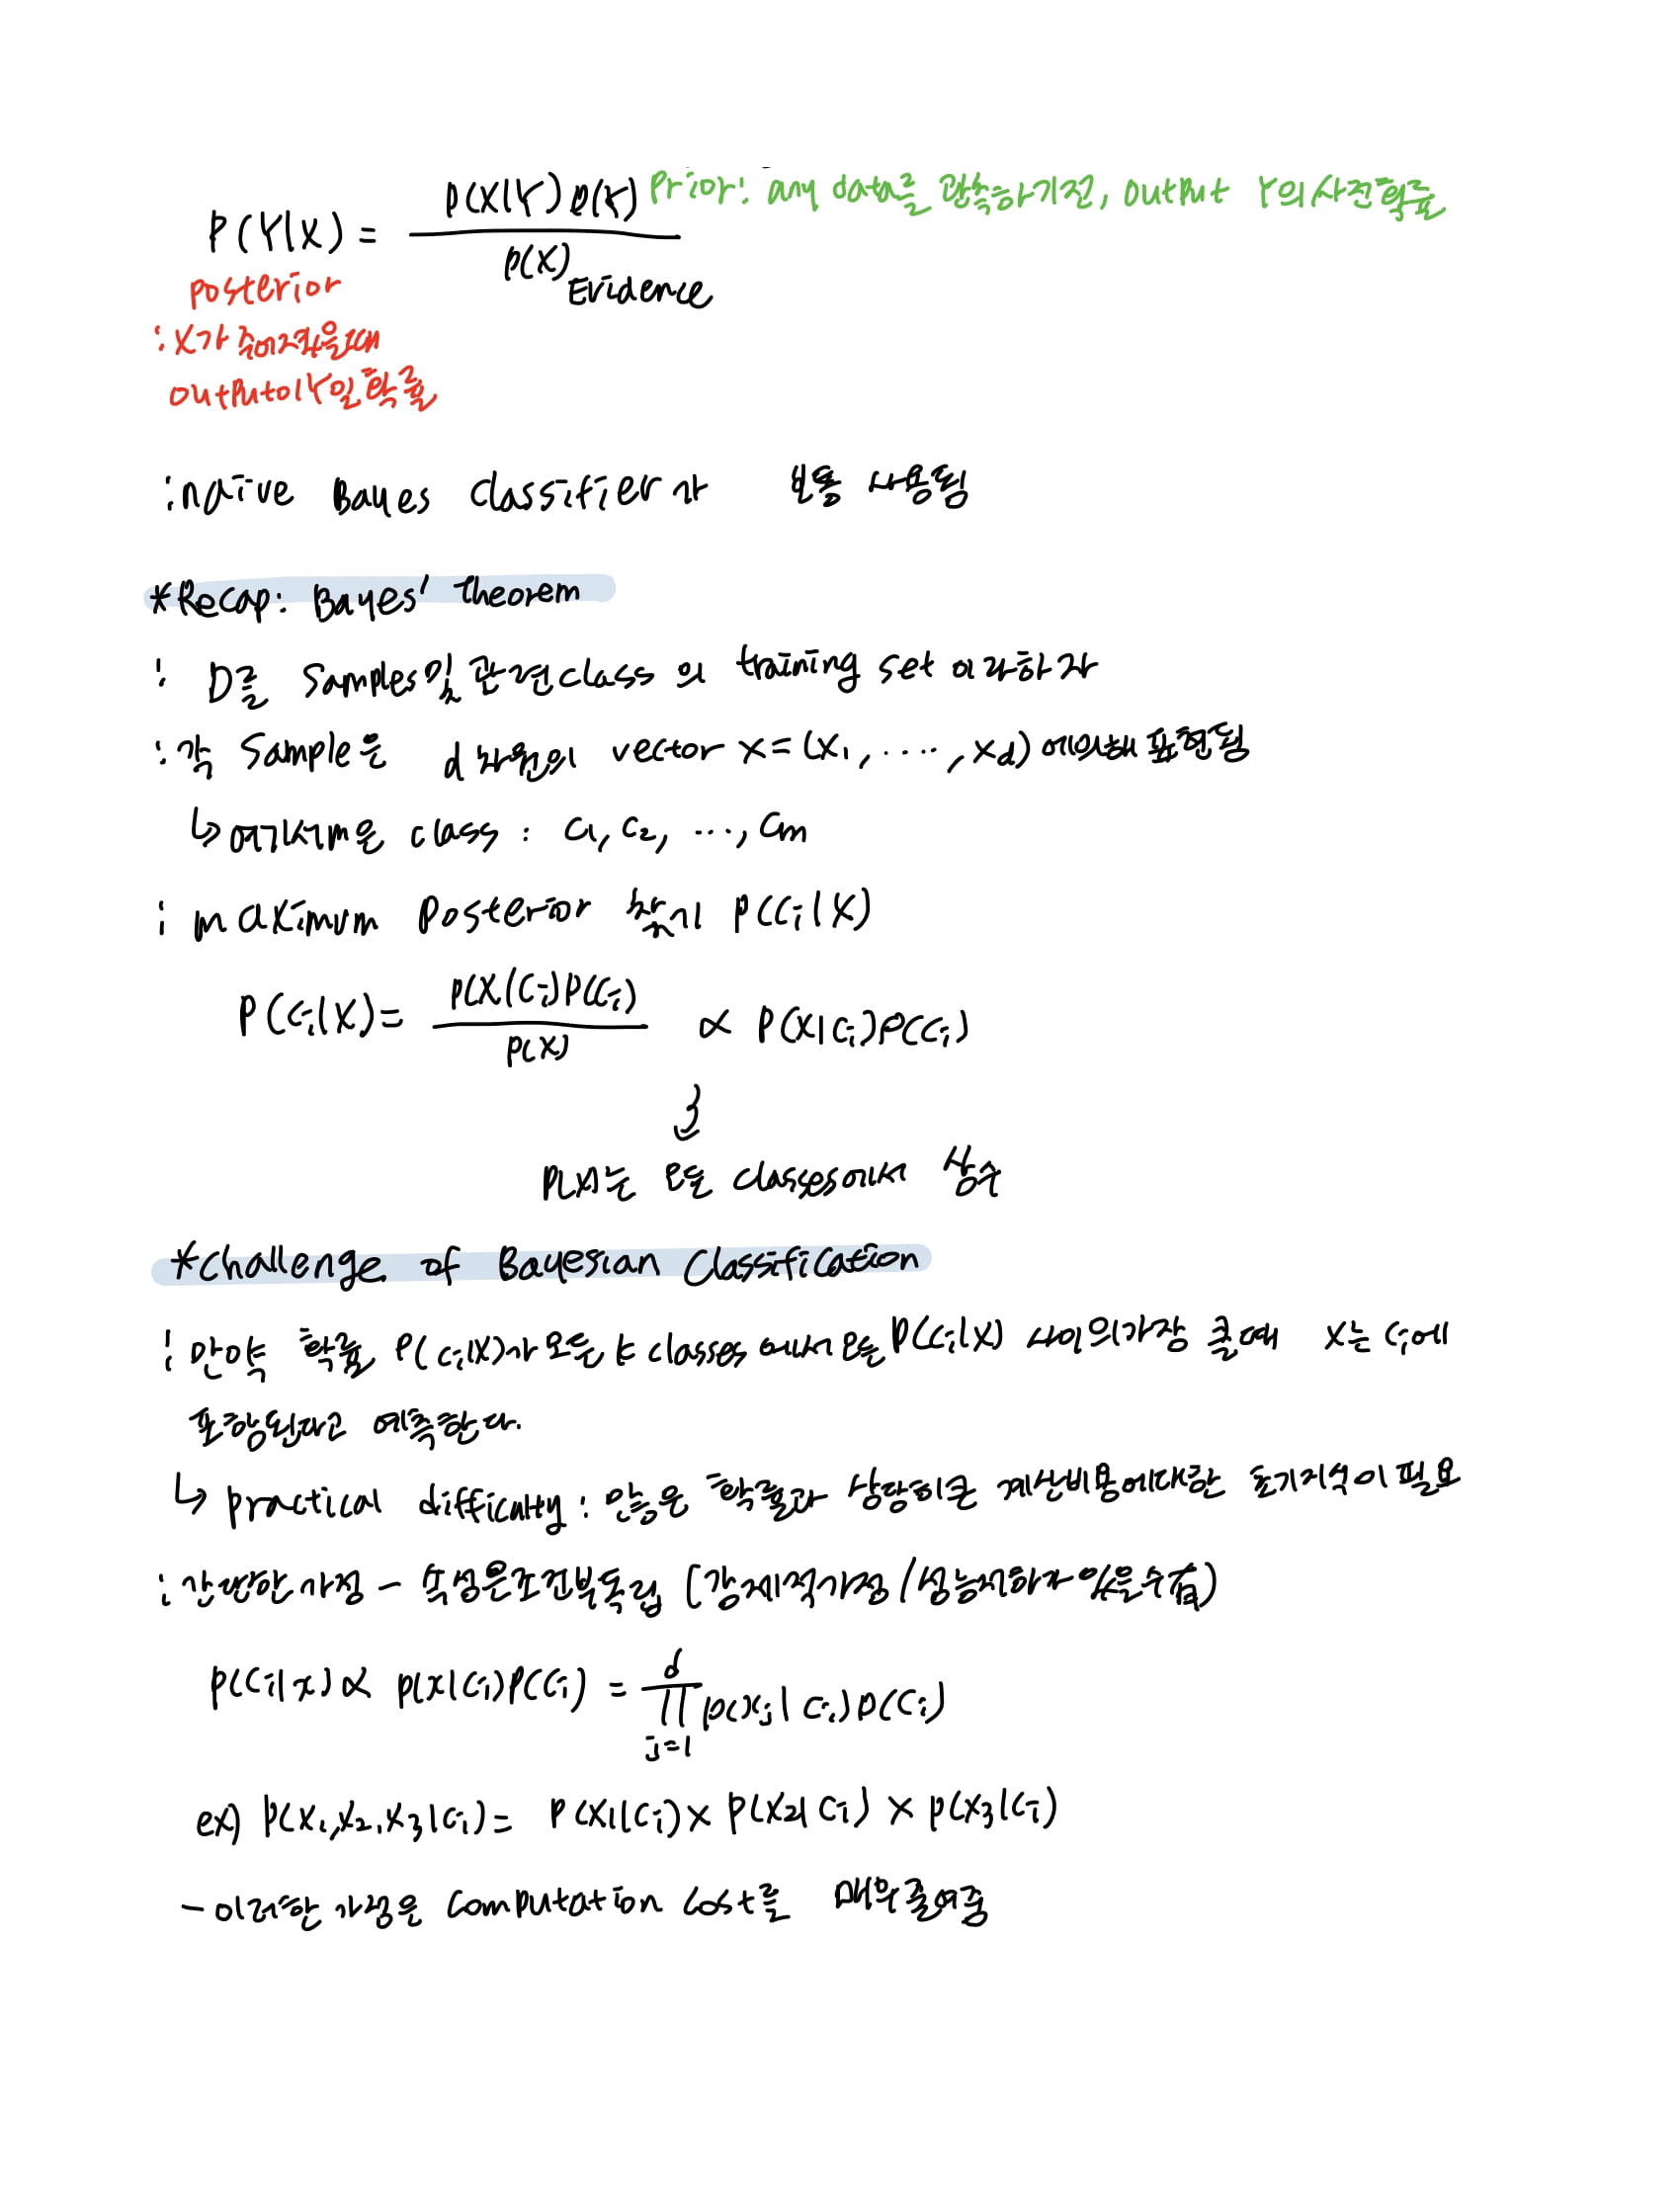 P(Y|X) = P(X|Y)P(Y) / P(X)
Prior: any data를 관측하기전, output Y의 사전확률
Evidence
posterior
: X가 주어졌을때
output이 Y일 확률
: naive Bayes classifier가 보통 사용됨
*Recap: Bayes' theorem
: D를 samples 및 관련 class의 training set 이라하자
: 각 sample은 d차원의 vector x=(x₁, ...., x_d)에의해 표현됨
↳ 여기서 m은 class : C₁, C₂, ..., Cm
: maximum posterior 찾기 P(Ci|X)
P(Ci|X) = P(X|Ci)P(Ci) / P(X) ∝ P(X|Ci)P(Ci)
P(X)는 모든 classes에서 상수
*Challenge of Bayesian Classification
: 만약 확률 P(Ci|X)가 모든 k classes 에서 모든 P(Ci|X) 사이의 가장 클때 X는 Ci에
포함된다고 예측한다.
↳ practical difficulty: 많은 확률과 상당히큰 계산비용에대한 초기지식이 필요
: 간단한 가정 - 속성은 조건부독립 (강제적가정/성능저하가 있을수有)
P(Ci|x) ∝ P(x|Ci)P(Ci) = ∏_{j=1}^{d} P(xj|Ci)P(Ci)
ex) P(x₁,x₂,x₃|Ci) = P(x₁|Ci) × P(x₂|Ci) × P(x₃|Ci)
- 이러한 가정은 computation cost를 매우 줄여줌